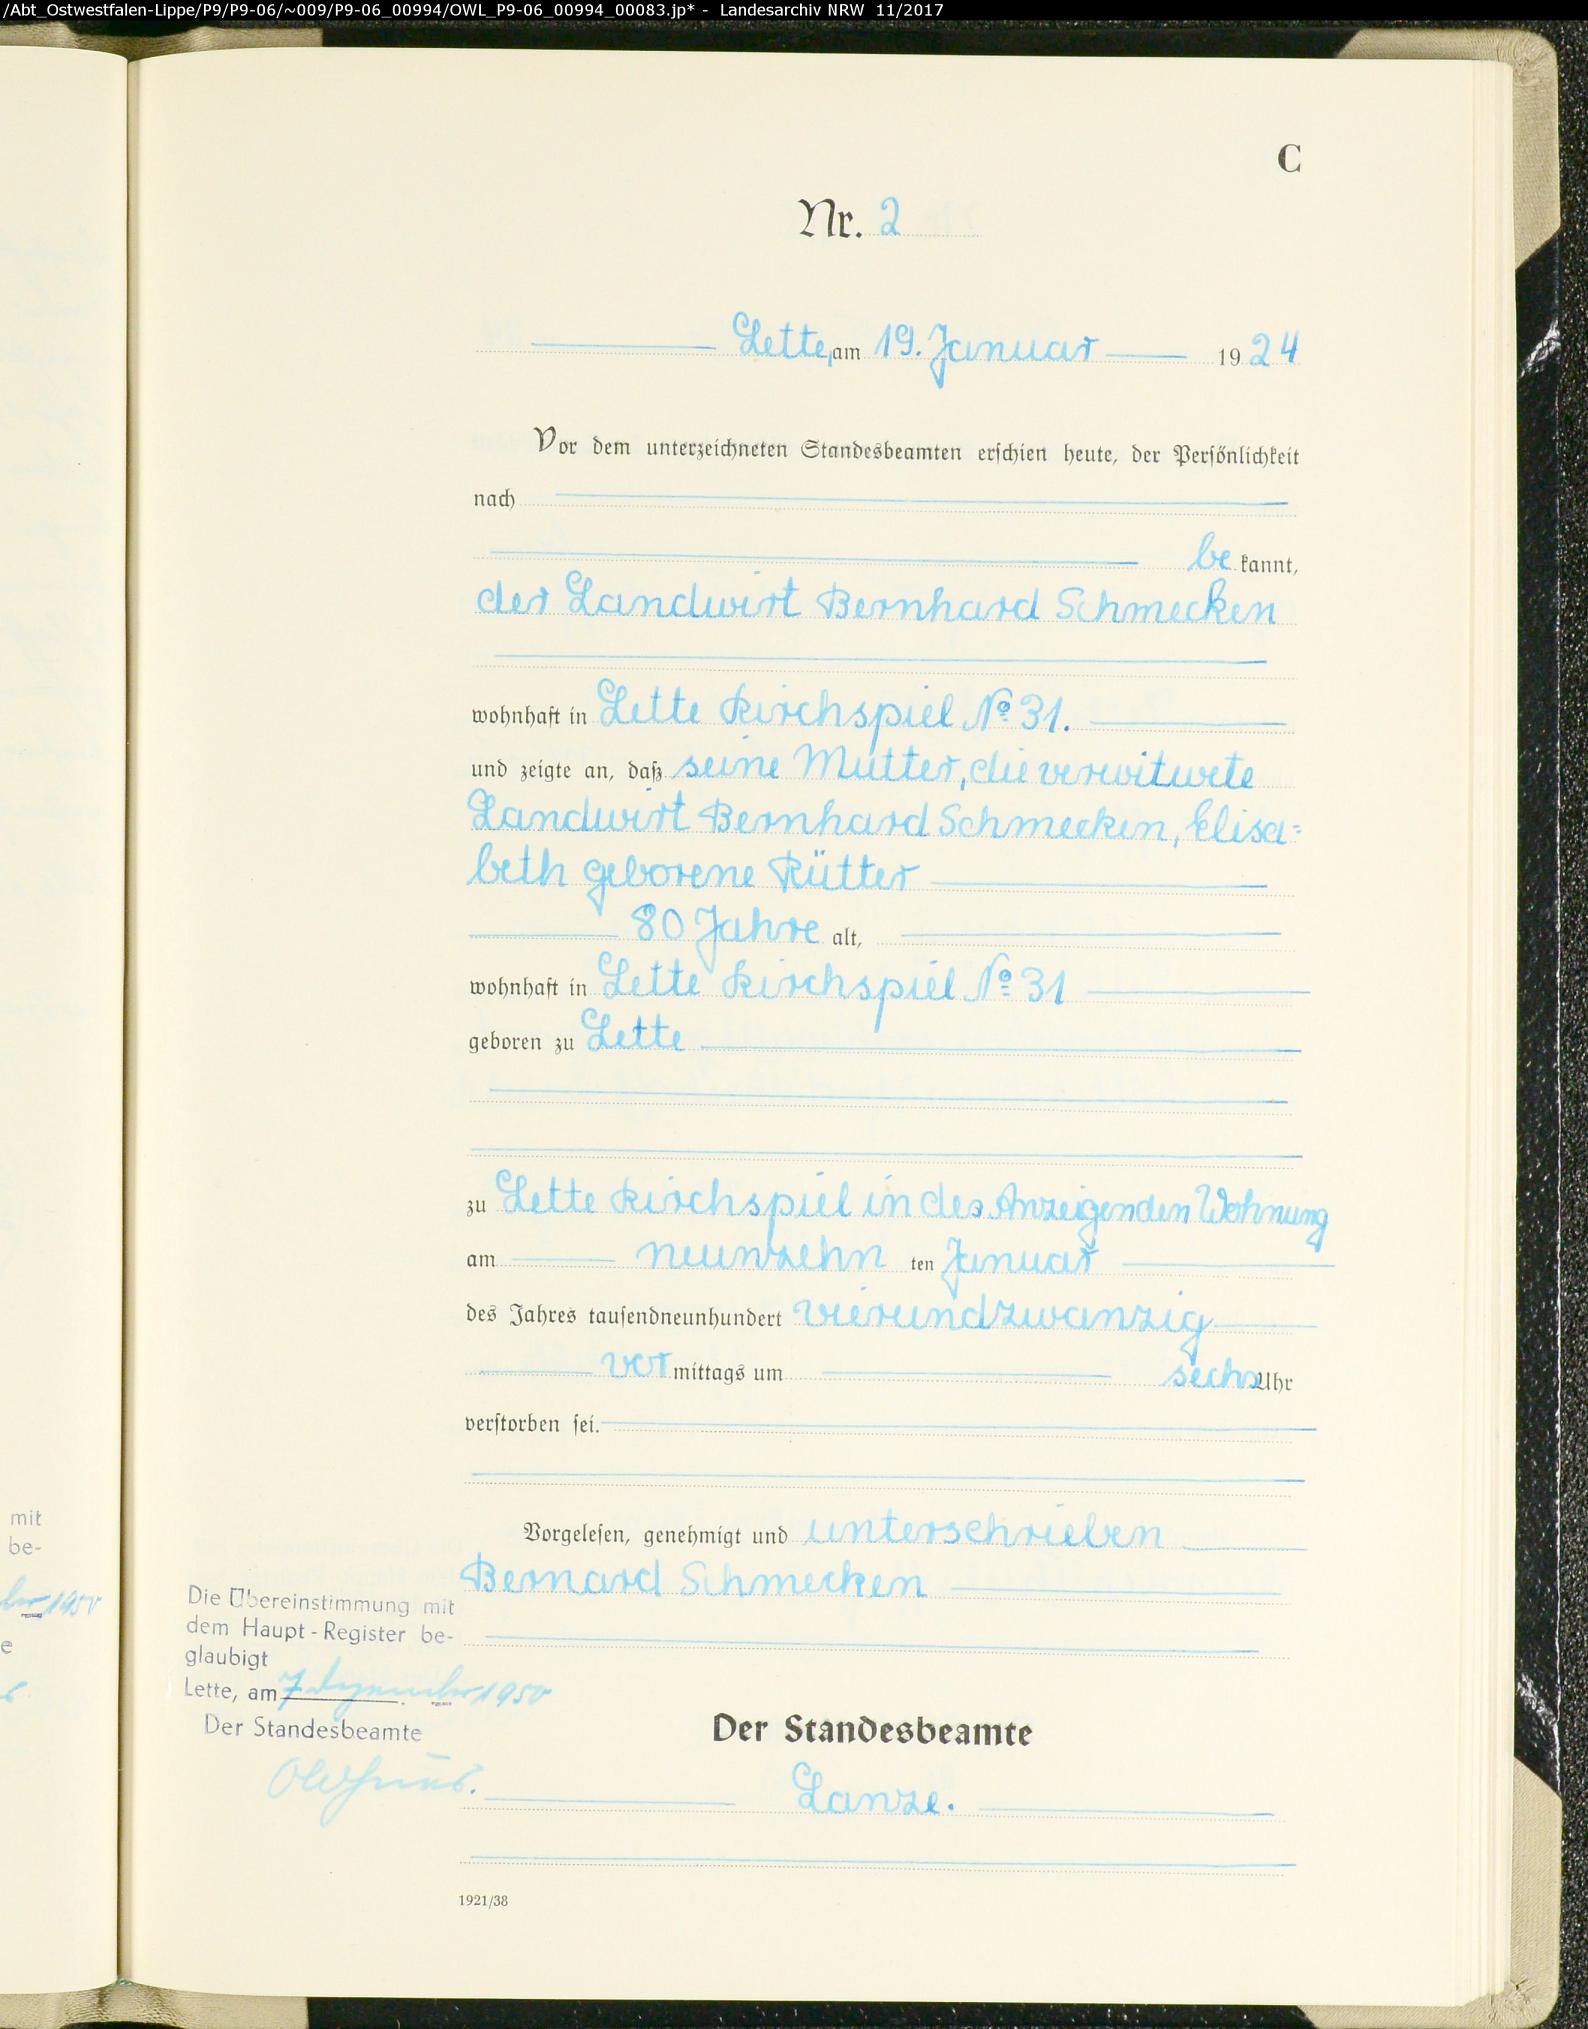 /Abt_Ostwestfalen-Lippe/P9/P9-06/~009/P9-06_00994/OWL_P9-06_00994_00083.jp* - Landesarchiv NRW 11/2017
C
Nr. 2
Lette, am 19. Januar 1924
Vor dem unterzeichneten Standesbeamten erschien heute, der Persönlichkeit
nach
be kannt,
der Landwirt Bernhard Schmecken
wohnhaft in Lette Kirchspiel No 31.
und zeigte an, daß seine Mutter, die verwitwete
Landwirt Bernhard Schmecken, Elisa=
beth geborene Rütter
80 Jahre alt,
wohnhaft in Lette Kirchspiel No 31
geboren zu Lette
zu Lette Kirchspiel in des Anzeigenden Wohnung
am neunzehn ten Januar
des Jahres tausendneunhundert vierundzwanzig
vor mittags um sechs Uhr
verstorben sei.
Vorgelesen, genehmigt und unterschrieben
Bernard Schmecken
Die Übereinstimmung mit
dem Haupt-Register be-
glaubigt
Lette, am 7 Dezember 1950
Der Standesbeamte
Der Standesbeamte
Lanze.
1921/38
mit
be-
1950
e